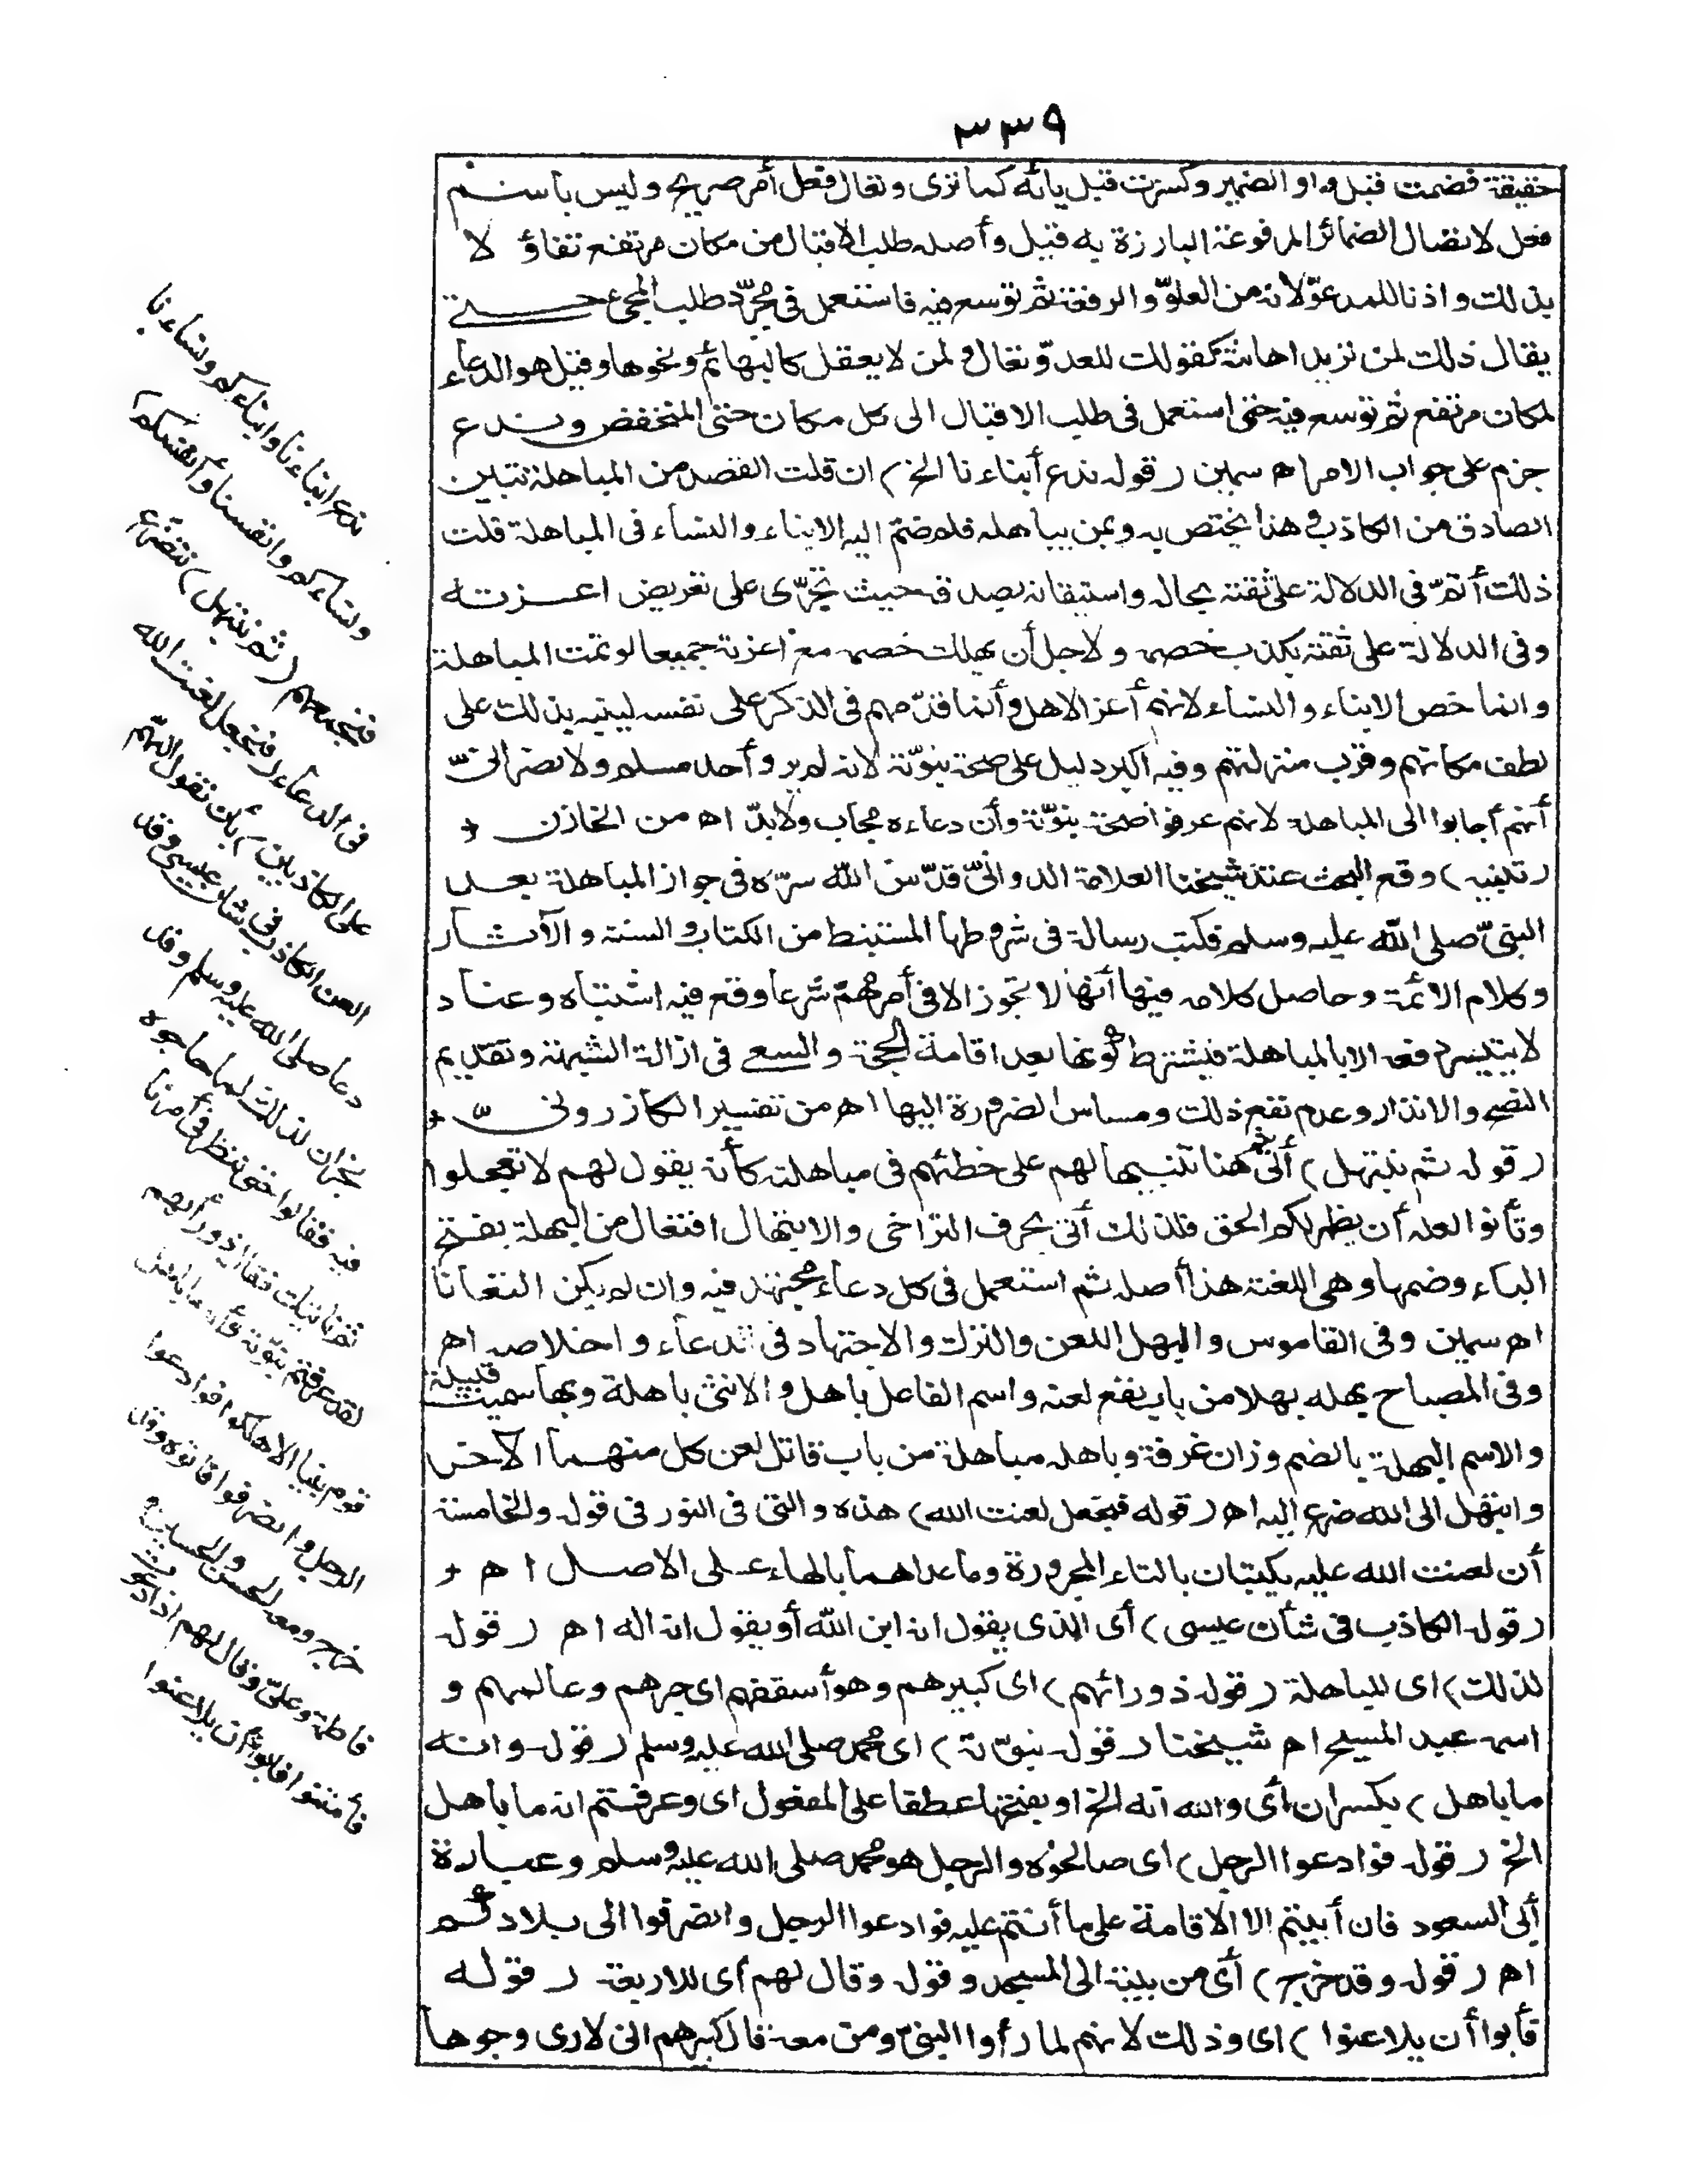 ٣٣٩
حقيقة فضمت قبل واو الضمير وكسرت قبل يائه كما نرى وتعال فعل أمر صريح وليس باسم
فعل لاتصال الضمائر المرفوعة البارزة به قيل وأصله طلب الاقبال من مكان مرتفع تفاؤلا
بذلك واذنا للمدعوّ لانه من العلوّ والرفعة ثم توسع فيه فاستعمل فى مجرّد طلب المجئ حتى
يقال ذلك لمن تريد اهانته كقولك للعدوّ تعال ولمن لا يعقل كالبهائم ونحوها وقيل هو الدعاء
لمكان مرتفع ثم توسع فيه حتى استعمل فى طلب الاقبال الى كل مكان حتى المنخفض وندع
جزم على جواب الامر اه سمين (قوله ندع أبناءنا الخ) ان قلت القصد من المباهلة تبيين
الصادق من الكاذب وهذا يختص به وبمن يباهله فلم ضم اليه الابناء والنساء فى المباهلة قلت
ذلك أتمّ فى الدلالة على ثقته بحاله واستيقانه بصدقه حيث تجرّى على تعريض اعزته
وفى الدلالة على ثقته بكذب خصمه ولاجل أن يهلك خصمه مع اعزته جميعا لو تمت المباهلة
وانما خص الابناء والنساء لانهم أعز الاهل وأنما قدّمهم فى الذكر على نفسه لينبه بذلك على
لطف مكانهم وقرب منزلتهم وفيه اكبر دليل على صحة نبوّته لانه لم يرو أحد مسلم ولا نصرانىّ
أنهم أجابوا الى المباهلة لانهم عرفوا صحة نبوّته وأن دعاءه مجاب ولابدّ اه من الخازن
(تنبيه) وقع البحث عند شيخنا العلامة الدوانىّ قدّس اللّه سرّه فى جواز المباهلة بعد
النبىّ صلى اللّه عليه وسلم فكتب رسالة فى شروطها المستنبط من الكتاب والسنة والآثار
وكلام الائمة وحاصل كلامه فيها أنها لا تجوز الا فى أمر مهمّ شرعا وقع فيه اشتباه وعناد
لا يتيسر دفعه الا بالمباهلة فيشترط كونها بعد اقامة الحجة والسعى فى ازالة الشبهة وتقديم
النصح والانذار وعدم نفع ذلك ومساس الضرورة اليها اه من تفسير الكازرونىّ
(قوله ثم نبتهل) أتى بثم هنا تنبيها لهم على خطئهم فى مباهلته كأنه يقول لهم لا تعجلوا
وتأنوا لعله أن يظهر لكم الحق فلذلك أتى بحرف التراخى والابتهال افتعال من البهلة بفتح
الباء وضمها وهى اللعنة هذا أصله ثم استعمل فى كل دعاء مجتهد فيه وان لم يكن التعانا
اه سمين وفى القاموس والبهل اللعن والترك والاجتهاد فى الدعاء واخلاصه اه
وفى المصباح بهله بهلا من باب نفع لعنه واسم الفاعل باهل والانثى باهلة وبها سميت قبيلة
والاسم البهلة بالضم وزان غرفة وباهله مباهلة من باب قاتل لعن كل منهما الآخر
وابتهل الى الله ضرع اليه اه (قوله فنجعل لعنت الله) هذه والتى فى النور فى قوله والخامسة
أن لعنت الله عليه يكتبان بالتاء المجرورة وما عداهما بالهاء على الاصل اه
(قوله الكاذب فى شأن عيسى) أى الذى يقول انه ابن اللّه أو يقول انه اله اه (قوله
لذلك) اى للمباهلة (قوله ذو رائهم) اى كبيرهم وهو أسقفهم اى حبرهم وعالمهم و
اسمه عبد المسيح اه شيخنا (قوله نبوّته) اى محمد صلى الله عليه وسلم (قوله وانه
ما باهل) بكسر ان أى والله انه الخ او بفتحها عطفا على المفعول اى وعرفتم انه ما باهل
الخ (قوله فوادعوا الرجل) اى صالحوه والرجل هو محمد صلى الله عليه وسلم وعبارة
أبى السعود فان أبيتم الا الاقامة على ما أنتم عليه فوادعوا الرجل وانصرفوا الى بلادكم
اه (قوله وقد خرج) أى من بيته الى المسجد وقوله وقال لهم أى للاربعة (قوله
فأبوا أن يلاعنوا) اى وذلك لانهم لما رأوا النبىّ ومن معه قال كبيرهم انى لارى وجوها
ندع ابناءنا وابناءكم ونساءنا
ونساءكم وانفسنا وأنفسكم)
فنجمعهم (ثم نبتهل) نتضرّع
فى الدعاء (فنجعل لعنت الله
على الكاذبين) بأن نقول اللهمّ
العن الكاذب فى شأن عيسى وقد
دعا صلى الله عليه وسلم وفد
نجران لذلك لما حاجوه
فيه فقالوا حتى ننظر فى أمرنا
ثم نأتيك فقال ذو رأيهم
لقد عرفتم نبوّته وأنه ما باهل
قوم نبيا الا هلكوا فوادعوا
الرجل وانصرفوا فأتوه وقد
خرج ومعه الحسن والحسين و
فاطمة وعلىّ وقال لهم اذا دعوت
فأمنوا فأبوا أن يلاعنوا